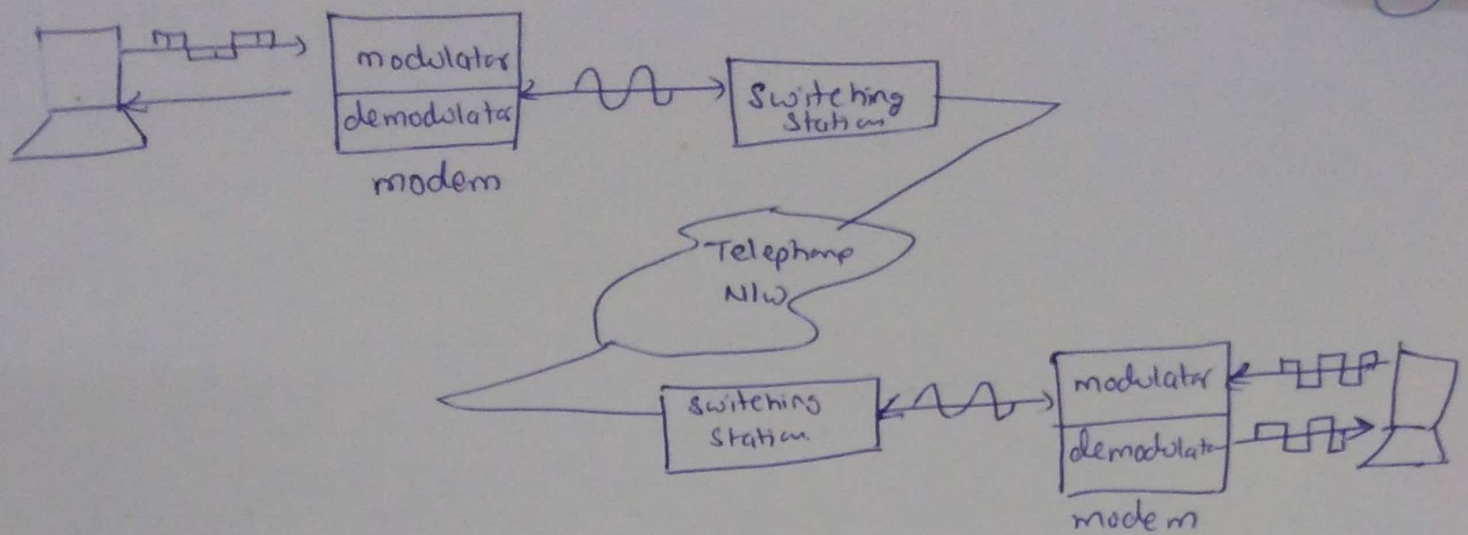 modulator
demodulator
modem
Switching
Station
Telephone
N/W
Switching
Station
modulator
demodulator
modem